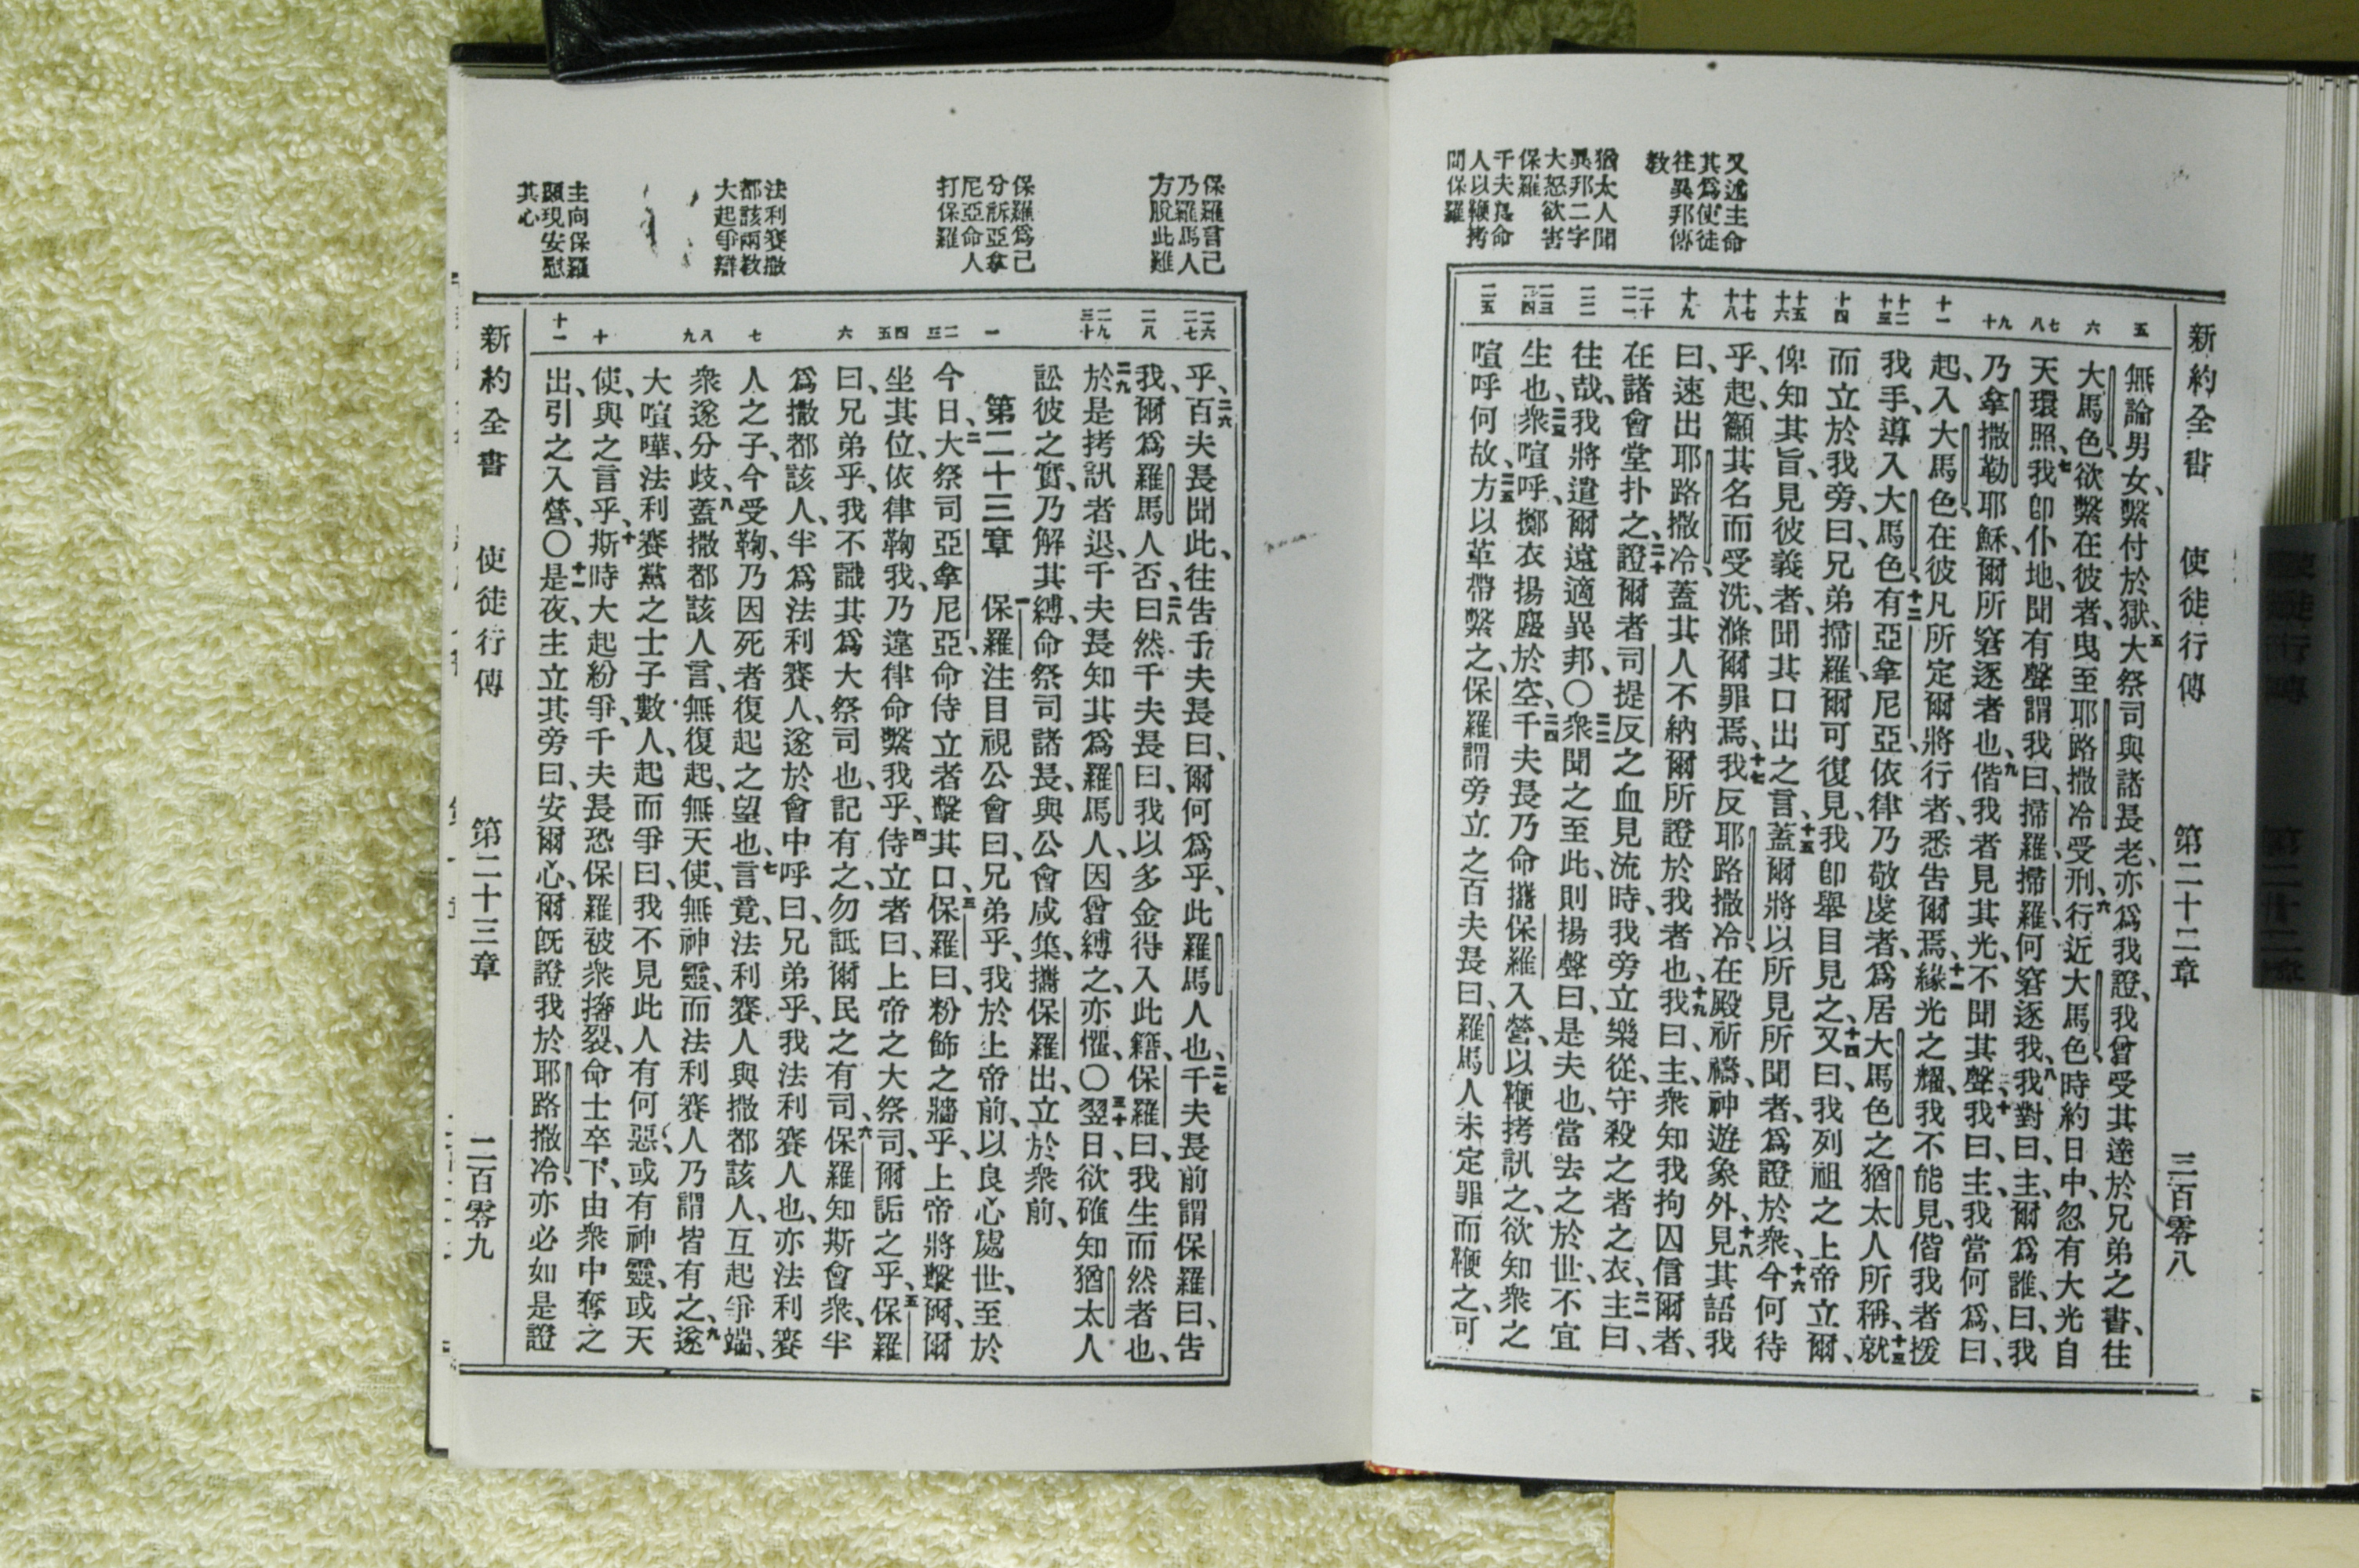 新約全書 使徒行傳 第二十二章 三百零八
又述主命
其爲使徒
往異邦傳
教
猶太人聞
異邦二字
大怒欲害
保羅
千夫長命
人以鞭拷
問保羅
五 六 七 八 九 十 十一 十二 十三 十四 十五 十六 十七 十八 十九 二十 二一 二二 二三 二四 二五
無論男女、繫付於獄、五大祭司與諸長老、亦爲我證、我曾受其達於兄弟之書、往
大馬色、欲繫在彼者、曳至耶路撒冷受刑、六行近大馬色、時約日中、忽有大光自
天環照、七我卽仆地、聞有聲謂我曰、掃羅、掃羅、何窘逐我、八我對曰、主、爾爲誰、曰、我
乃拿撒勒耶穌、爾所窘逐者也、九偕我者見其光、不聞其聲、十我曰、主、我當何爲、曰、
起、入大馬色、在彼凡所定爾將行者、悉告爾焉、十一緣光之耀、我不能見、偕我者援
我手、導入大馬色、十二有亞拿尼亞、依律乃敬虔者、爲居大馬色之猶太人所稱、十三就
而立於我旁、曰、兄弟掃羅、爾可復見、我卽舉目見之、十四又曰、我列祖之上帝立爾、
俾知其旨、見彼義者、聞其口出之言、十五蓋爾將以所見所聞者、爲證於衆、十六今何待
乎、起、籲其名而受洗、滌爾罪焉、十七我反耶路撒冷、在殿祈禱、神遊象外、十八見其語我
曰、速出耶路撒冷、蓋其人不納爾所證於我者也、十九我曰、主、衆知我拘囚信爾者、
在諸會堂扑之、二十證爾者司提反之血見流時、我旁立樂從、守殺之者之衣、二一主曰、
往哉、我將遣爾遠適異邦、〇二二衆聞之至此、則揚聲曰、是夫也、當去之於世、不宜
生也、二三衆喧呼、擲衣揚塵於空、二四千夫長乃命攜保羅入營、以鞭拷訊之、欲知衆之
喧呼何故、二五方以革帶繫之、保羅謂旁立之百夫長曰、羅馬人未定罪而鞭之、可
保羅言己
乃羅馬人
方脫此難
保羅爲己
分訴亞拿
尼亞命人
打保羅
法利賽撒
都該兩教
大起爭辯
主向保羅
顯現安慰
其心
二六 二七 二八 二九 三十 一 二 三 四 五 六 七 八 九 十 十一
乎、二六百夫長聞此、往告千夫長曰、爾何爲乎、此羅馬人也、二七千夫長前謂保羅曰、告
我、爾爲羅馬人否、曰、然、二八千夫長曰、我以多金得入此籍、保羅曰、我生而然者也、
二九於是拷訊者退、千夫長知其爲羅馬人、因曾縛之、亦懼、〇三十翌日、欲確知猶太人
訟彼之實、乃解其縛、命祭司諸長、與公會咸集、攜保羅出、立於衆前、
第二十三章 一保羅注目視公會曰、兄弟乎、我於上帝前、以良心處世、至於
今日、二大祭司亞拿尼亞、命侍立者擊其口、三保羅曰、粉飾之牆乎、上帝將擊爾、爾
坐其位、依律鞫我、乃違律命擊我乎、四侍立者曰、上帝之大祭司、爾詬之乎、五保羅
曰、兄弟乎、我不識其爲大祭司也、記有之、勿詆爾民之有司、六保羅知斯會衆、半
爲撒都該人、半爲法利賽人、遂於會中呼曰、兄弟乎、我法利賽人也、亦法利賽
人之子、今受鞫、乃因死者復起之望也、七言竟、法利賽人與撒都該人、互起爭端、
衆遂分歧、八蓋撒都該人言、無復起、無天使、無神靈、而法利賽人乃謂皆有之、九遂
大喧嘩、法利賽黨之士子數人、起而爭曰、我不見此人有何惡、或有神靈、或天
使、與之言乎、十斯時大起紛爭、千夫長恐保羅被衆搚裂、命士卒下、由衆中奪之
出、引之入營、〇十一是夜、主立其旁曰、安爾心、爾旣證我於耶路撒冷、亦必如是證
新約全書 使徒行傳 第二十三章 二百零九